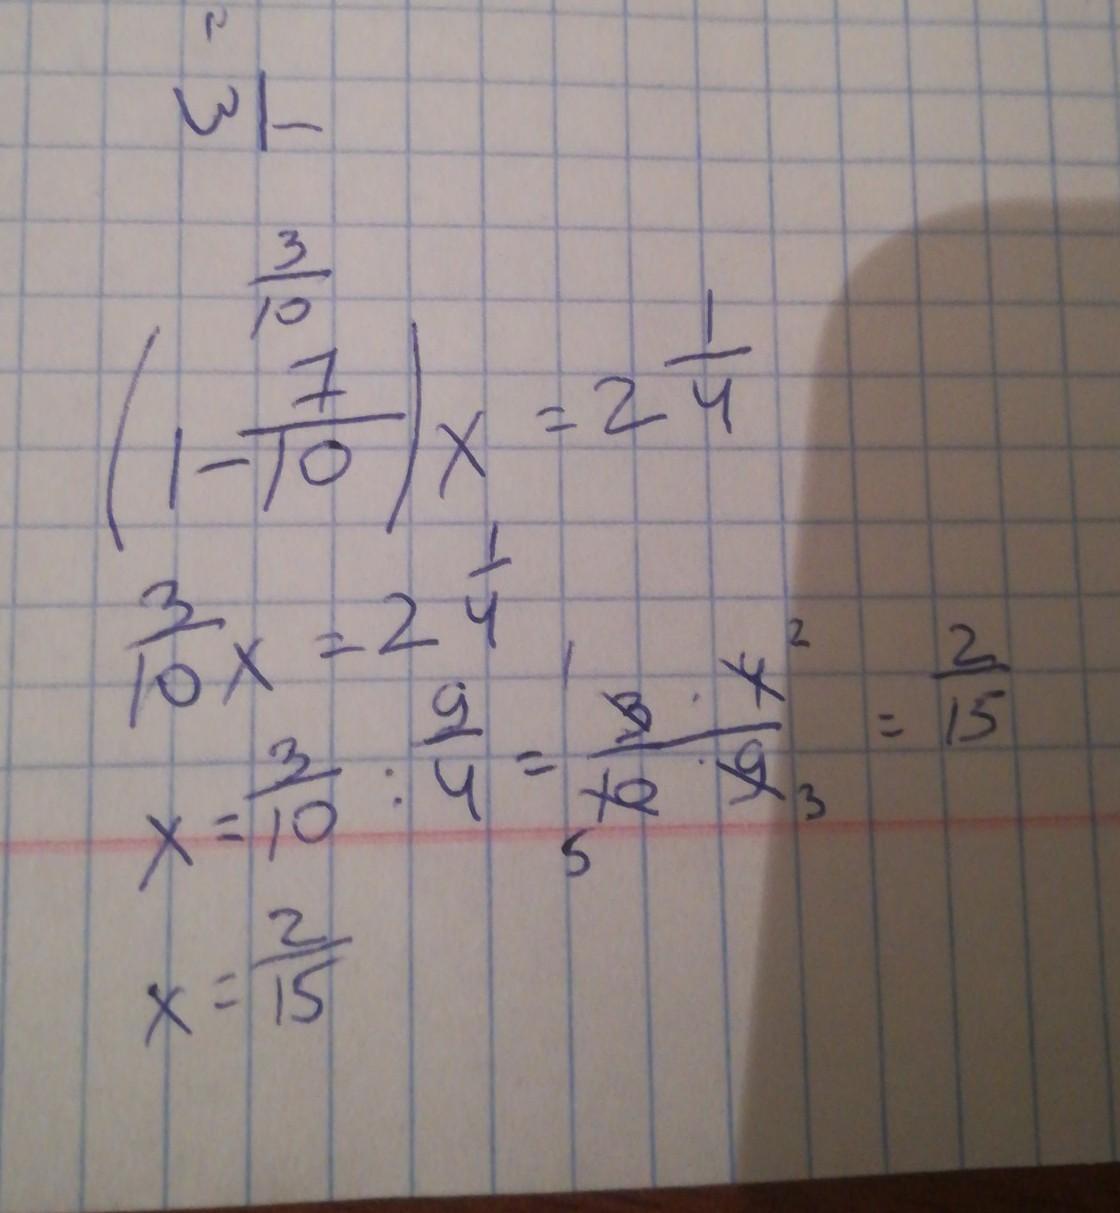 3 1
3/10
(1 - 7/10) x = 2 1/4
3/10 x = 2 1/4
x = 3/10 : 9/4 = 3 · 4 / 10 · 9 = 2/15
1 2
5 3
x = 2/15